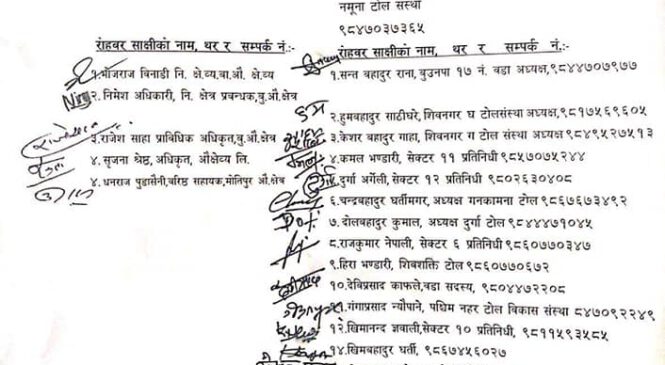 नमूना टोल संस्था
९८४७०३७३६५
रोहवर साक्षीको नाम, थर र सम्पर्क नं.:-
१.भोजराज विनाडी नि. क्षे.व्य.बा.औ. क्षे.व्य
२. निमेश अधिकारी, नि. क्षेत्र प्रवन्धक,बु.औ.क्षेत्र
३.राजेश साहा प्राविधिक अधिकृत,बु.औ.क्षेत्र
४. सृजना श्रेष्ठ, अधिकृत, औक्षेव्य लि.
४. धनराज पुडासैनी,बरिष्ठ सहायक,मोतिपुर औ.क्षेत्र
रोहवर साक्षीको नाम, थर र सम्पर्क नं.:-
१.सन्त बहादुर राना, बुउनपा १७ नं. वडा अध्यक्ष,९८४४७०७९७७
२.हुमबहादुर साठीघरे, शिवनगर घ टोलसंस्था अध्यक्ष,९८१७५६९६०५
३.केशर बहादुर गाहा, शिवनगर ग टोल संस्था अध्यक्ष ९८४९५२७५१३
४.कमल भण्डारी, सेक्टर ११ प्रतिनिधी ९८५७०७५२४४
दुर्गा अर्गेली, सेक्टर १२ प्रतिनिधी ९८०२६३०४०८
६.चन्द्रबहादुर घर्तीमगर, अध्यक्ष गनकामना टोल ९८६७६७३४९२
७. दोलबहादुर कुमाल, अध्यक्ष दुर्गा टोल ९८४४४७१०४५
८.राजकुमार नेपाली, सेक्टर ६ प्रतिनिधी ९८६०७७०३४७
९.हिरा भण्डारी, शिवशक्ति टोल ९८६०७७०६७२
१०.देविप्रसाद काफले,वडा सदस्य, ९८०४४७२२०८
११.गंगाप्रसाद न्यौपाने, पश्चिम नहर टोल विकास संस्था ८४७०९२२४९
१२.खिमानन्द ज्ञवाली,सेक्टर १० प्रतिनिधी, ९८११५९३५८५
१४.खिमबहादुर घर्ती, ९८६७४५६०२७